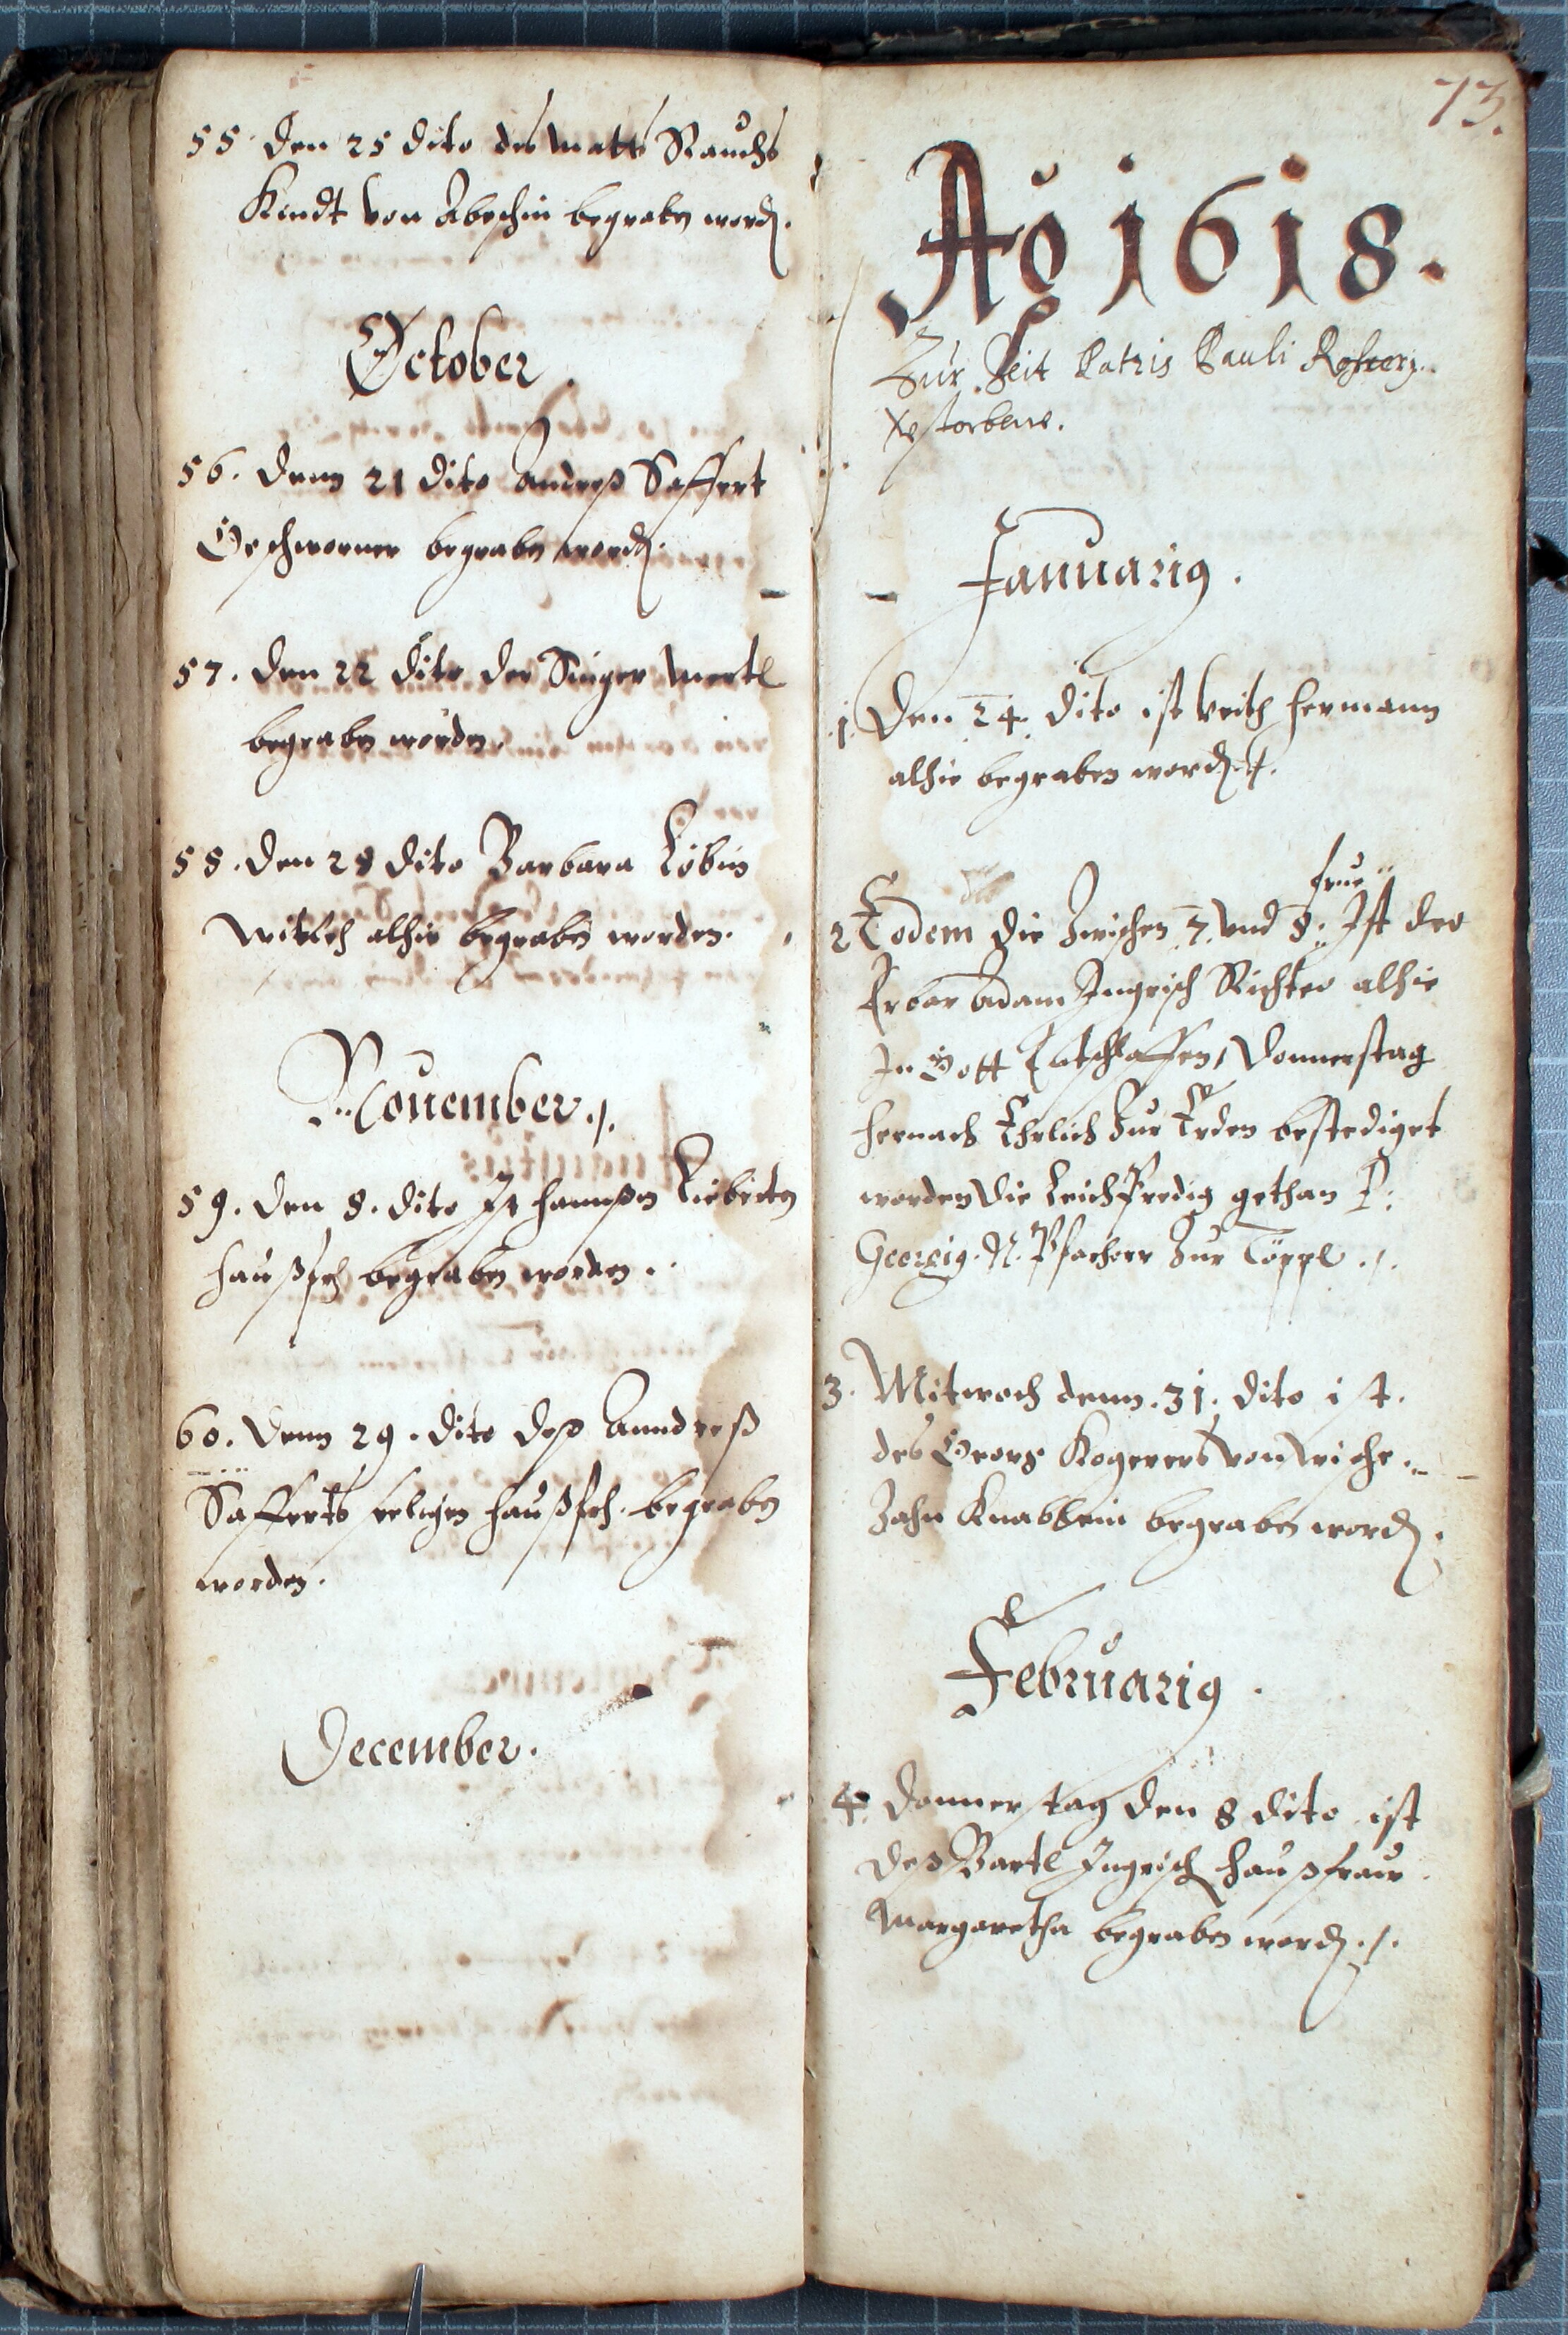 55. Den 25 dito des Matts Rauchs
Kindt von Abeschin begraben word.
October.
56. Denn 21 dito Andreß Saffert
Geschworner begraben word.
57. Den 22 dito der Singer Mertl
begraben worden.
58. Den 28 dito Barbara Löbin
Witbeh alhie begraben worden.
Nouember ./.
59. Den 8. dito Jst Hannßen Liebeten
Haußfrh begraben worden.
60. Denn 29. dito deß Anndreß
Safferts seligen Haußfrh. begraben
worden.
December.
73.
Aō 1618.
Zur Zeit Patris Pauli
Verstorbene.
Januarig.
1. Den 24. dito ist Veith Hermann
alhie begraben word. ./.
frue
2 Eodem die Zwischen 7. vnd 8. Jst der
Erbar Adam Ingrisch Richter alhie
In Gott Entschlaffen, Donnerstag
hernach Ehrlich Zur Erden bestediget
worden die Leich Predig gethan P:
Georgig. N. Pfarherr Zur Töppl ./.
3. Mitwoch denn .31. dito ist.
des Georg Kogerers von Wische
Zahn Knäblein begraben word.
Februarig.
4. Donnerstag den 8 dito ist
deß Bartl Ingrisch Haußfraw
Margaretha begraben word. ./.